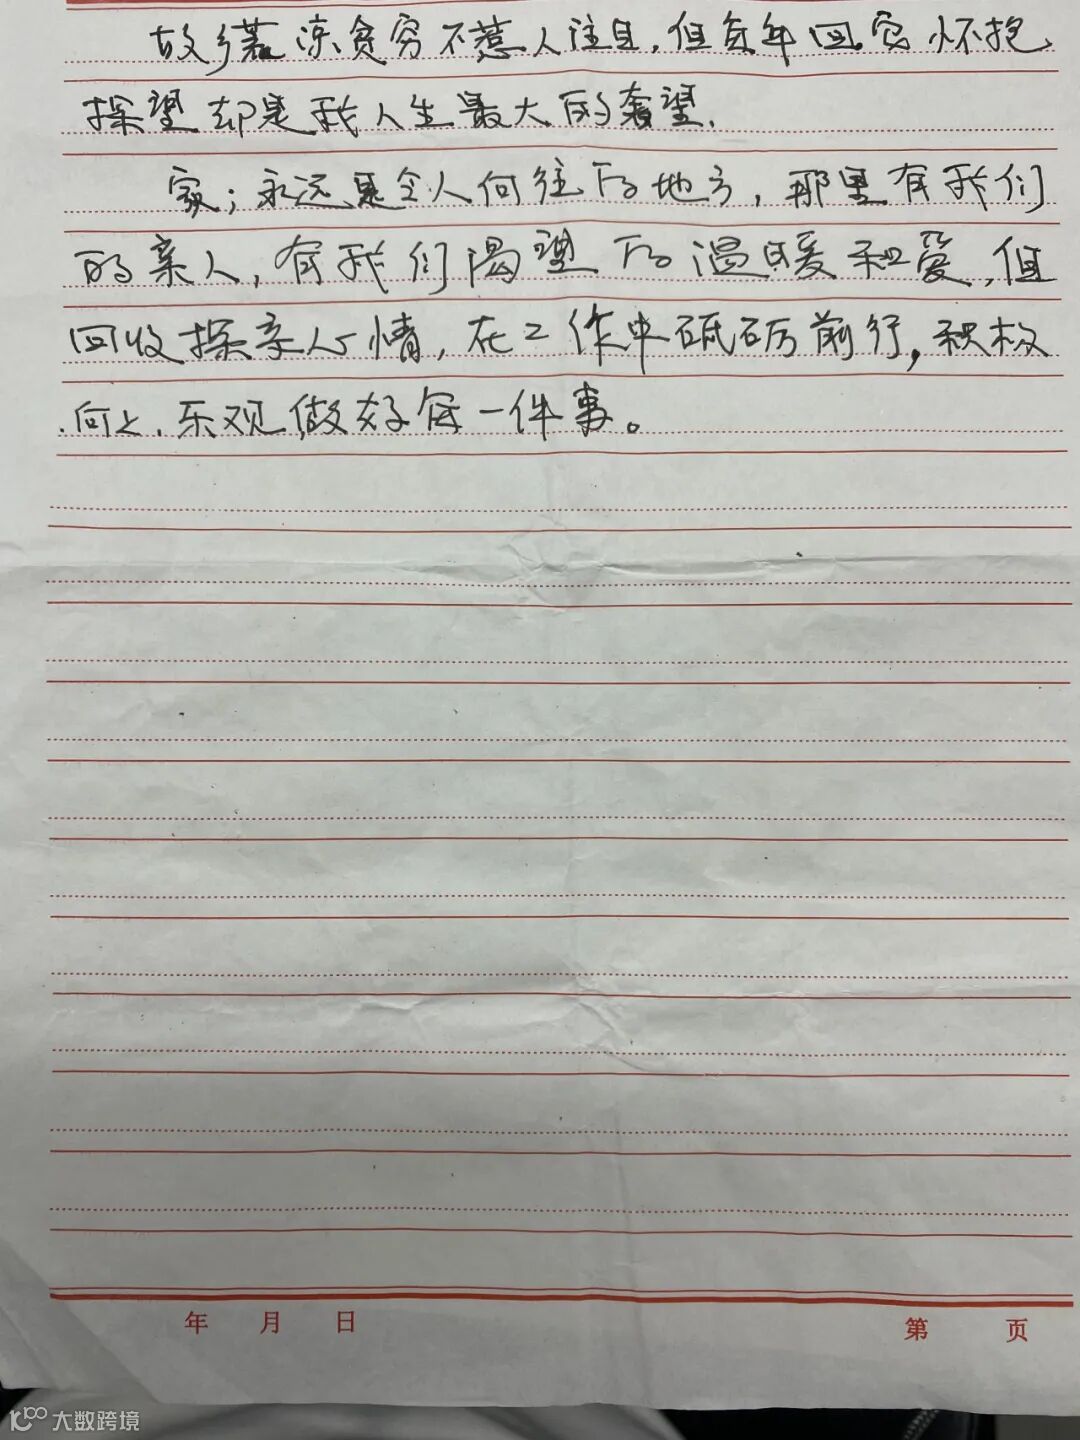 故乡荒凉贫穷不惹人注目，但每年回家怀抱
探望却是我人生最大的奢望.
家；永远是令人向往的地方，那里有我们
的亲人，有我们渴望的温暖和爱，但
回收探亲心情，在工作中砥砺前行，积极
向上、乐观做好每一件事。
年 月 日 第 页
大数跨境